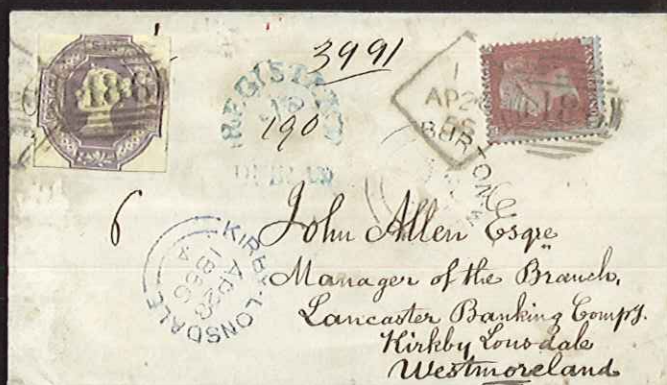 3991
186
REGISTERED
190
1
AP24
56
BURTON
6
KIRKBY-LONSDALE
1856
John Allen Esqre
Manager of the Branch,
Lancaster Banking Compy.
Kirkby Lonsdale
Westmoreland